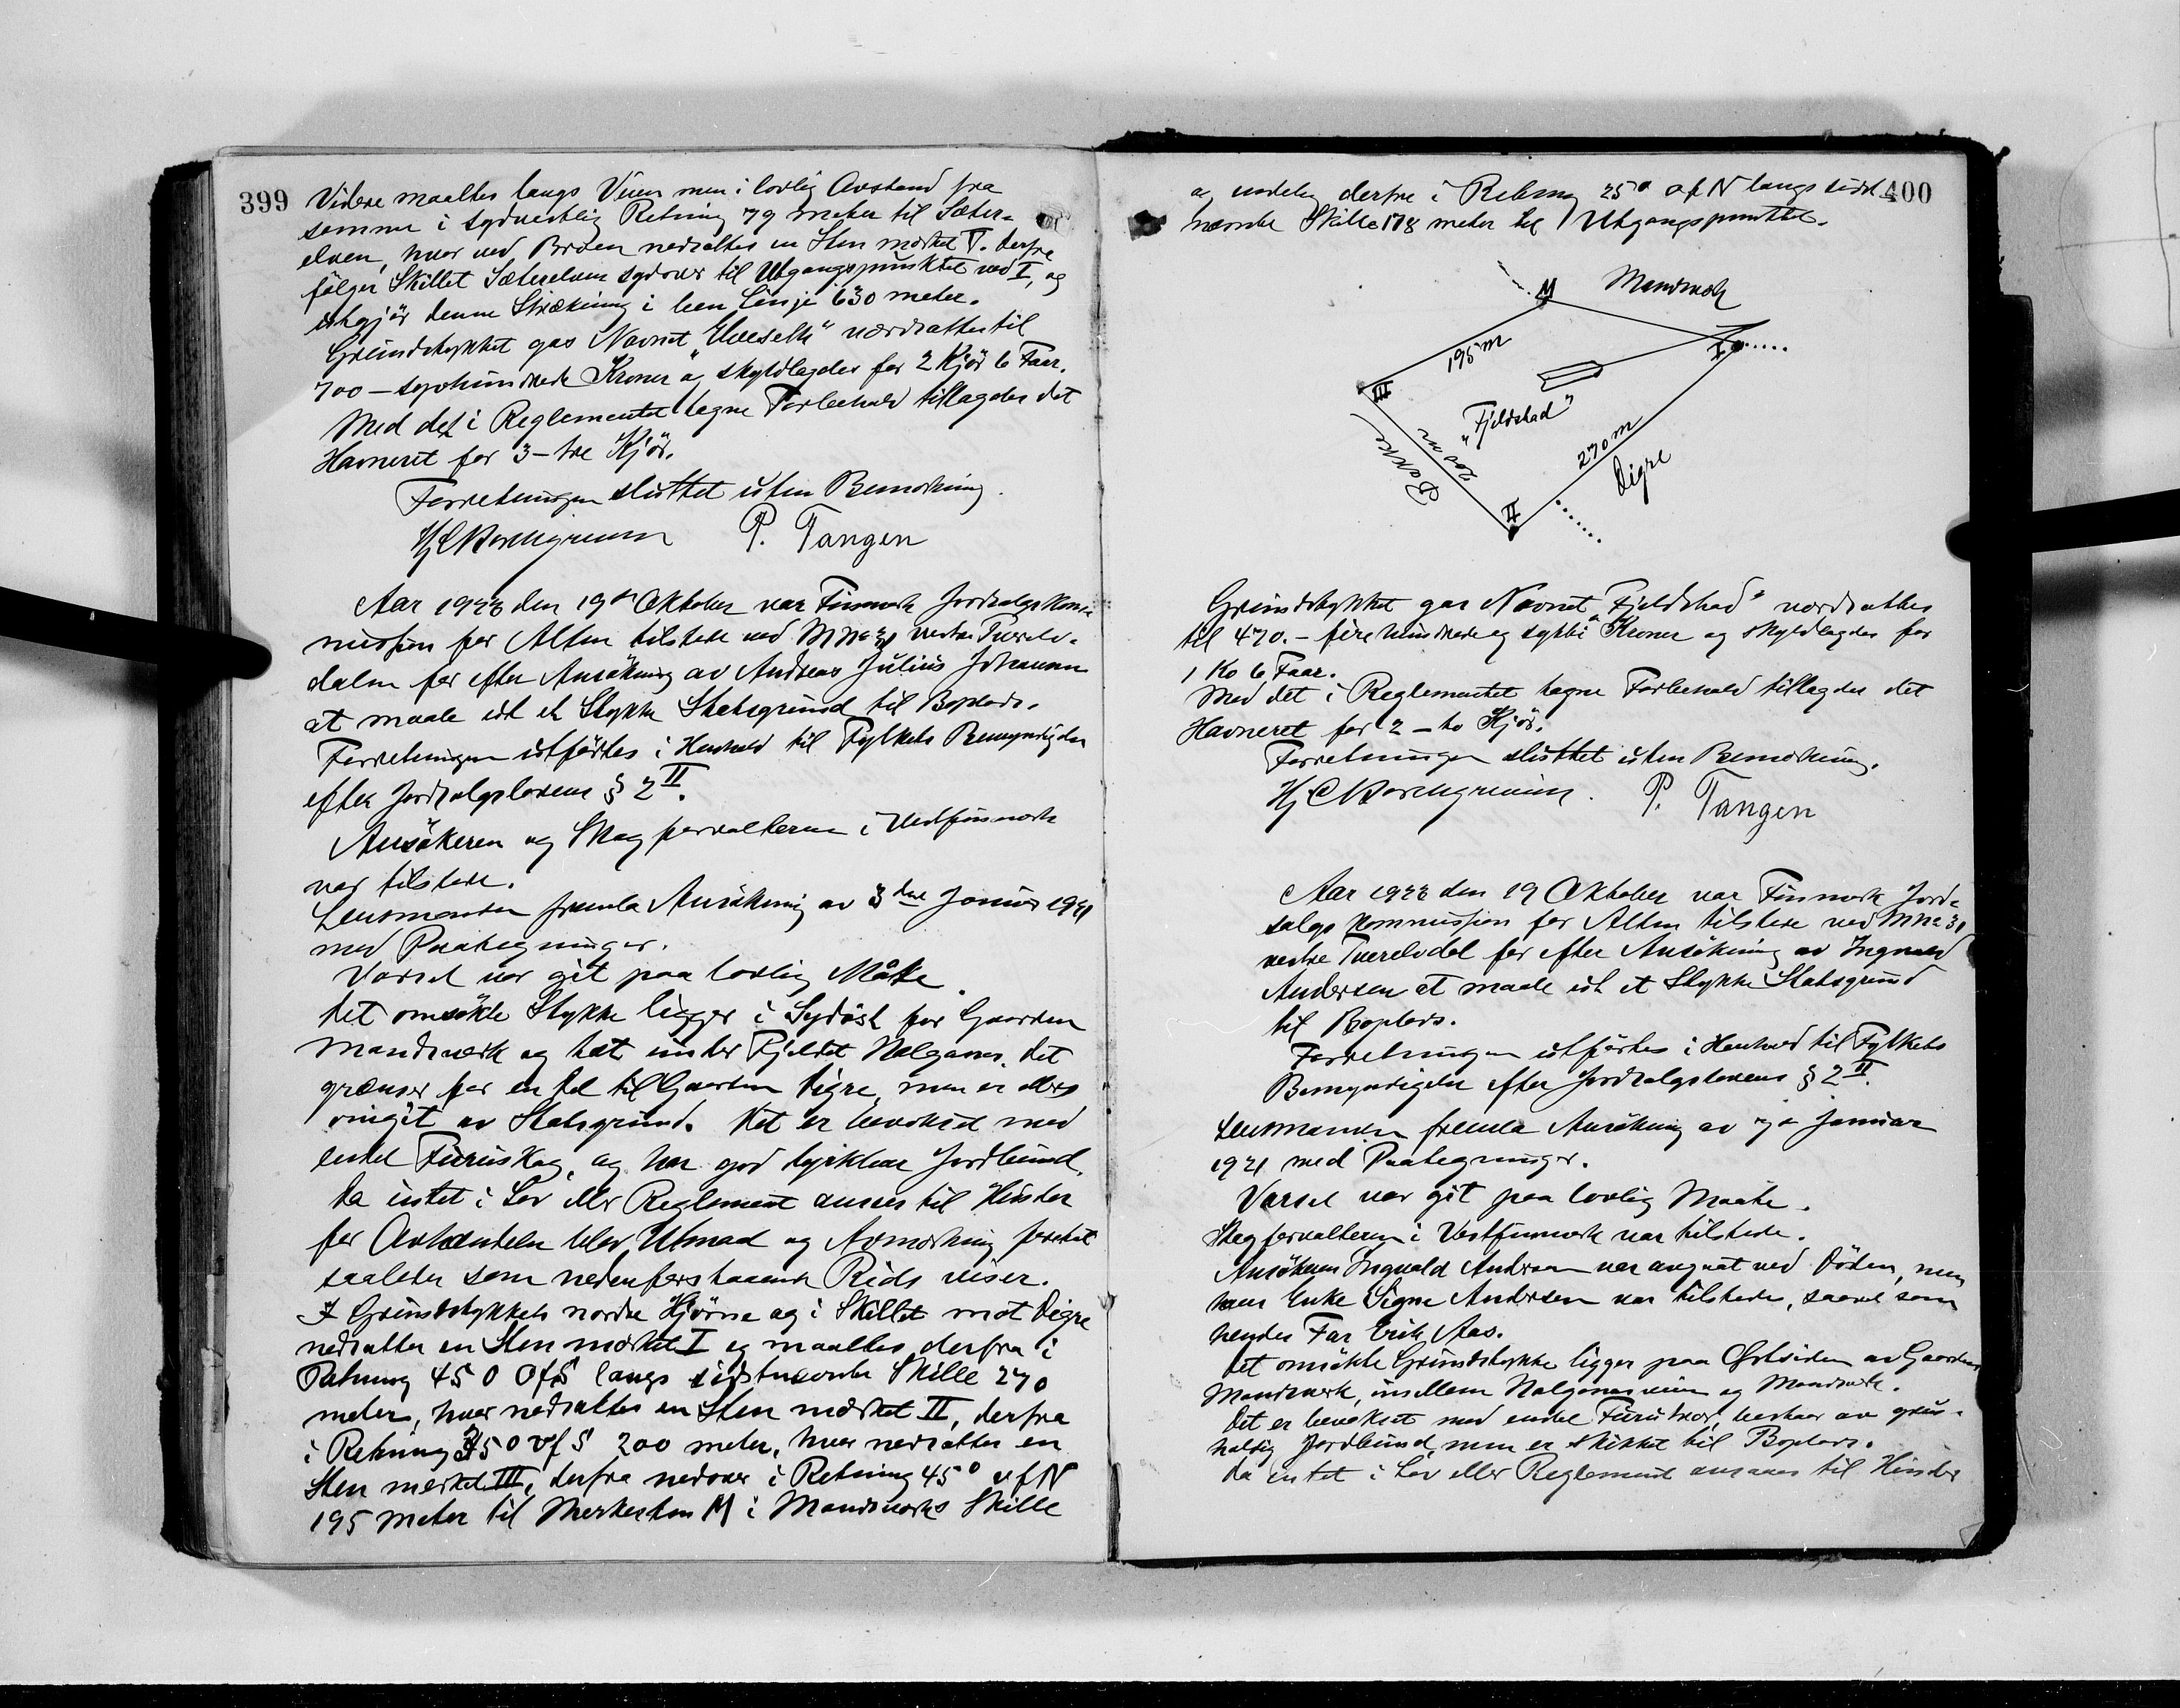 399
Videre maaltes langs Veien men i lovlig Avstand fra
samme i sydvestlig Retning 79 meter til Sæter-
elven, hvor ved Broen nedsattes en Sten merket V. Derfra
følger Skillet Sæterelven sydover til Utgangspunktet ved I, og
utgjør denne Strækning i ben Linje 630 meter.
Grundstykket gas Navnet „Elvesletta" værdsattes til
700 – syvhundrede Kroner og skyldlagdes for 2 Kjør 6 Faar.
Med det i Reglementet tagne Forbehold tillagdes det
Havneret for 3 – tre Kjør.
Forretningen sluttet uten Bemerkning.
Hj C Borchgrevink P. Tangen
Aar 1923 den 19de Oktober var Finmark Jordsalgskom-
mission for Alten tilstede ved M No 31 vestre Tverelv-
dalen for efter Ansøkning av Andreas Julius Johansen
at maale ut et Stykke Statsgrund til Boplads.
Forretningen utførtes i Henhold til Fylkets Bemyndigelse
efter Jordsalgslovens § 2 II.
Ansøkeren og Skogforvalteren i Vestfinmark
var tilstede.
Lensmanden fremla Ansøkning av 3dne Januar 1921
med Paategninger.
Varsel var git paa lovlig Måte.
Det omsøkte Stykke ligger i Sydøst for Gaarden
Mandsverk og tæt under Fjeldet Nalganas. Det
grænser for en Del til Gaarden Digre, men er ellers
omgit av Statsgrund. Det er bevokset med
endel Furuskog, og har god dyrkbar Jordbund.
Da intet i Lov eller Reglement ansees til Hinder
for Avhændelse blev Utmaal og Avmerkning foretat
saaledes som nedenforstaaende Rids viser.
I Grundstykkets nordre Hjørne og i Skillet mot Digre
nedsattes en Sten merket I og maaltes derfra i
Retning 45 0 Ø f S langs sidstnævnte Skille 270
meter, hvor nedsattes en Sten merket II, derfra
i Retning 35 0 V f S 200 meter, hvor nedsattes en
Sten merket III, derfra nedover i Retning 45° v f N
195 meter til Merkesten M i Mandsverks Skille
400
og endelig derfra i Retning 25° ø f N langs sidst-
nævnte Skille 178 meter til Utgangspunktet.
M Mandsverk
I
195 m
III
„Fjeldstad"
Bakke
200 m
270 m
Digre
II
Grundstykket gas Navnet „Fjeldstad" værdsattes
til 470. – fire hundrede og sytti Kroner og skyldlagdes for
1 Ko 6 Faar.
Med det i Reglementet tagne Forbehold tillagdes det
Havneret for 2 – to Kjør.
Forretningen sluttet uten Bemerkning.
Hj C Borchgrevink. P. Tangen
Aar 1923 den 19 Oktober var Finmark Jord-
salgs kommission for Alten tilstede ved M No 31
vestre Tverelvdal for efter Ansøkning av Ingvald
Andersen at maale ut et Stykke Statsgrund
til Boplads.
Forretningen utførtes i Henhold til Fylkets
Bemyndigelse efter Jordsalgslovens § 2 II.
Lensmanden fremla Ansøkning av 7de Januar
1921 med Paategninger.
Varsel var git paa lovlig Maate.
Skogforvalteren i Vestfinmark var tilstede.
Ansøkeren Ingvald Andersen var avgaat ved Døden, men
hans Enke Signe Andersen var tilstede, saavel som
hendes Far Erik Aas.
Det omsøkte Grundstykke ligger paa Østsiden av Gaarden
Mandsverk, imellem Nalganasveien og Mandsverk.
Det er bevokset med endel Furutrær, bestaar av grus-
holdig Jordbund, men er skikket til Boplads.
Da intet i Lov eller Reglement ansaaes til Hinder